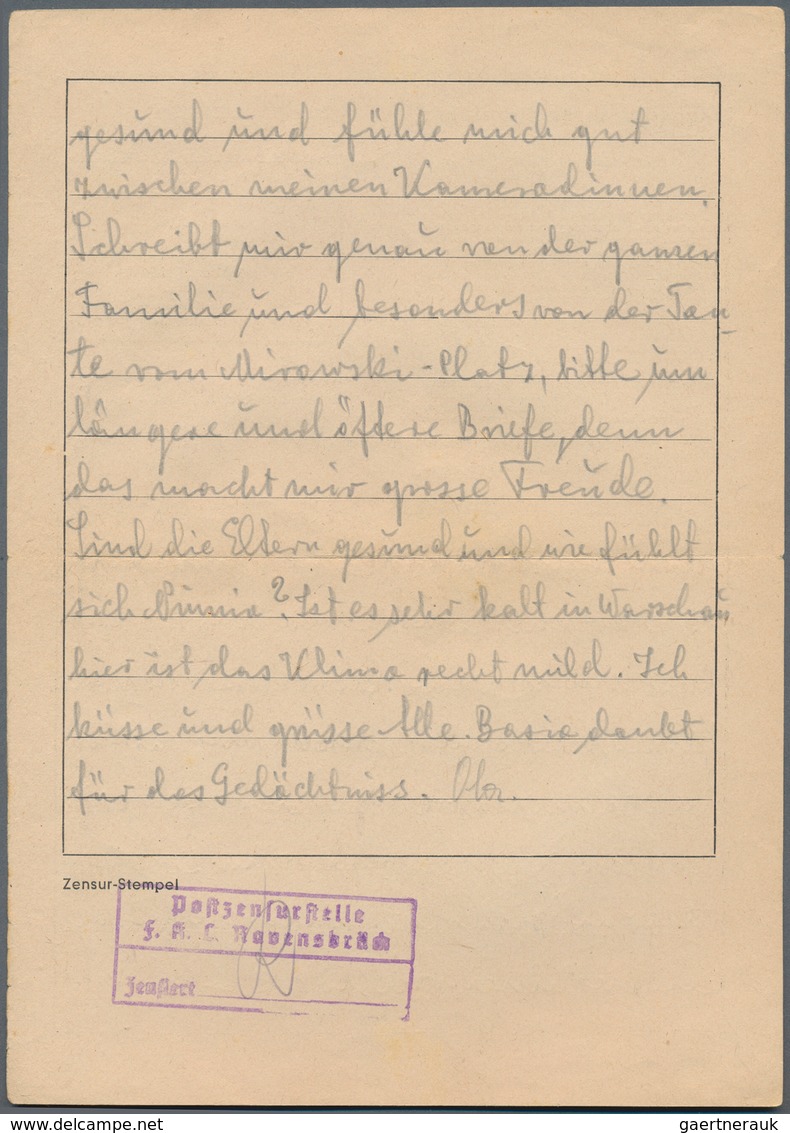 gesund und fühle mich gut
zwischen meinen Kameradinnen.
Schreibt mir genau von der ganzen
Familie und besonders von der Tan-
te vom Mirowski-Platz, bitte um
längere und öftere Briefe, denn
das macht mir grosse Freude.
Sind die Eltern gesund und wie fühlt
sich Niunia? Ist es sehr kalt in Warschau
hier ist das Klima recht mild. Ich
küsse und grüsse Alle. Basia dankt
für das Gedächtniss.
Zensur-Stempel
Postzensurstelle
F. K. L. Ravensbrück
Zensiert
delcampe.net
gaertnerauk